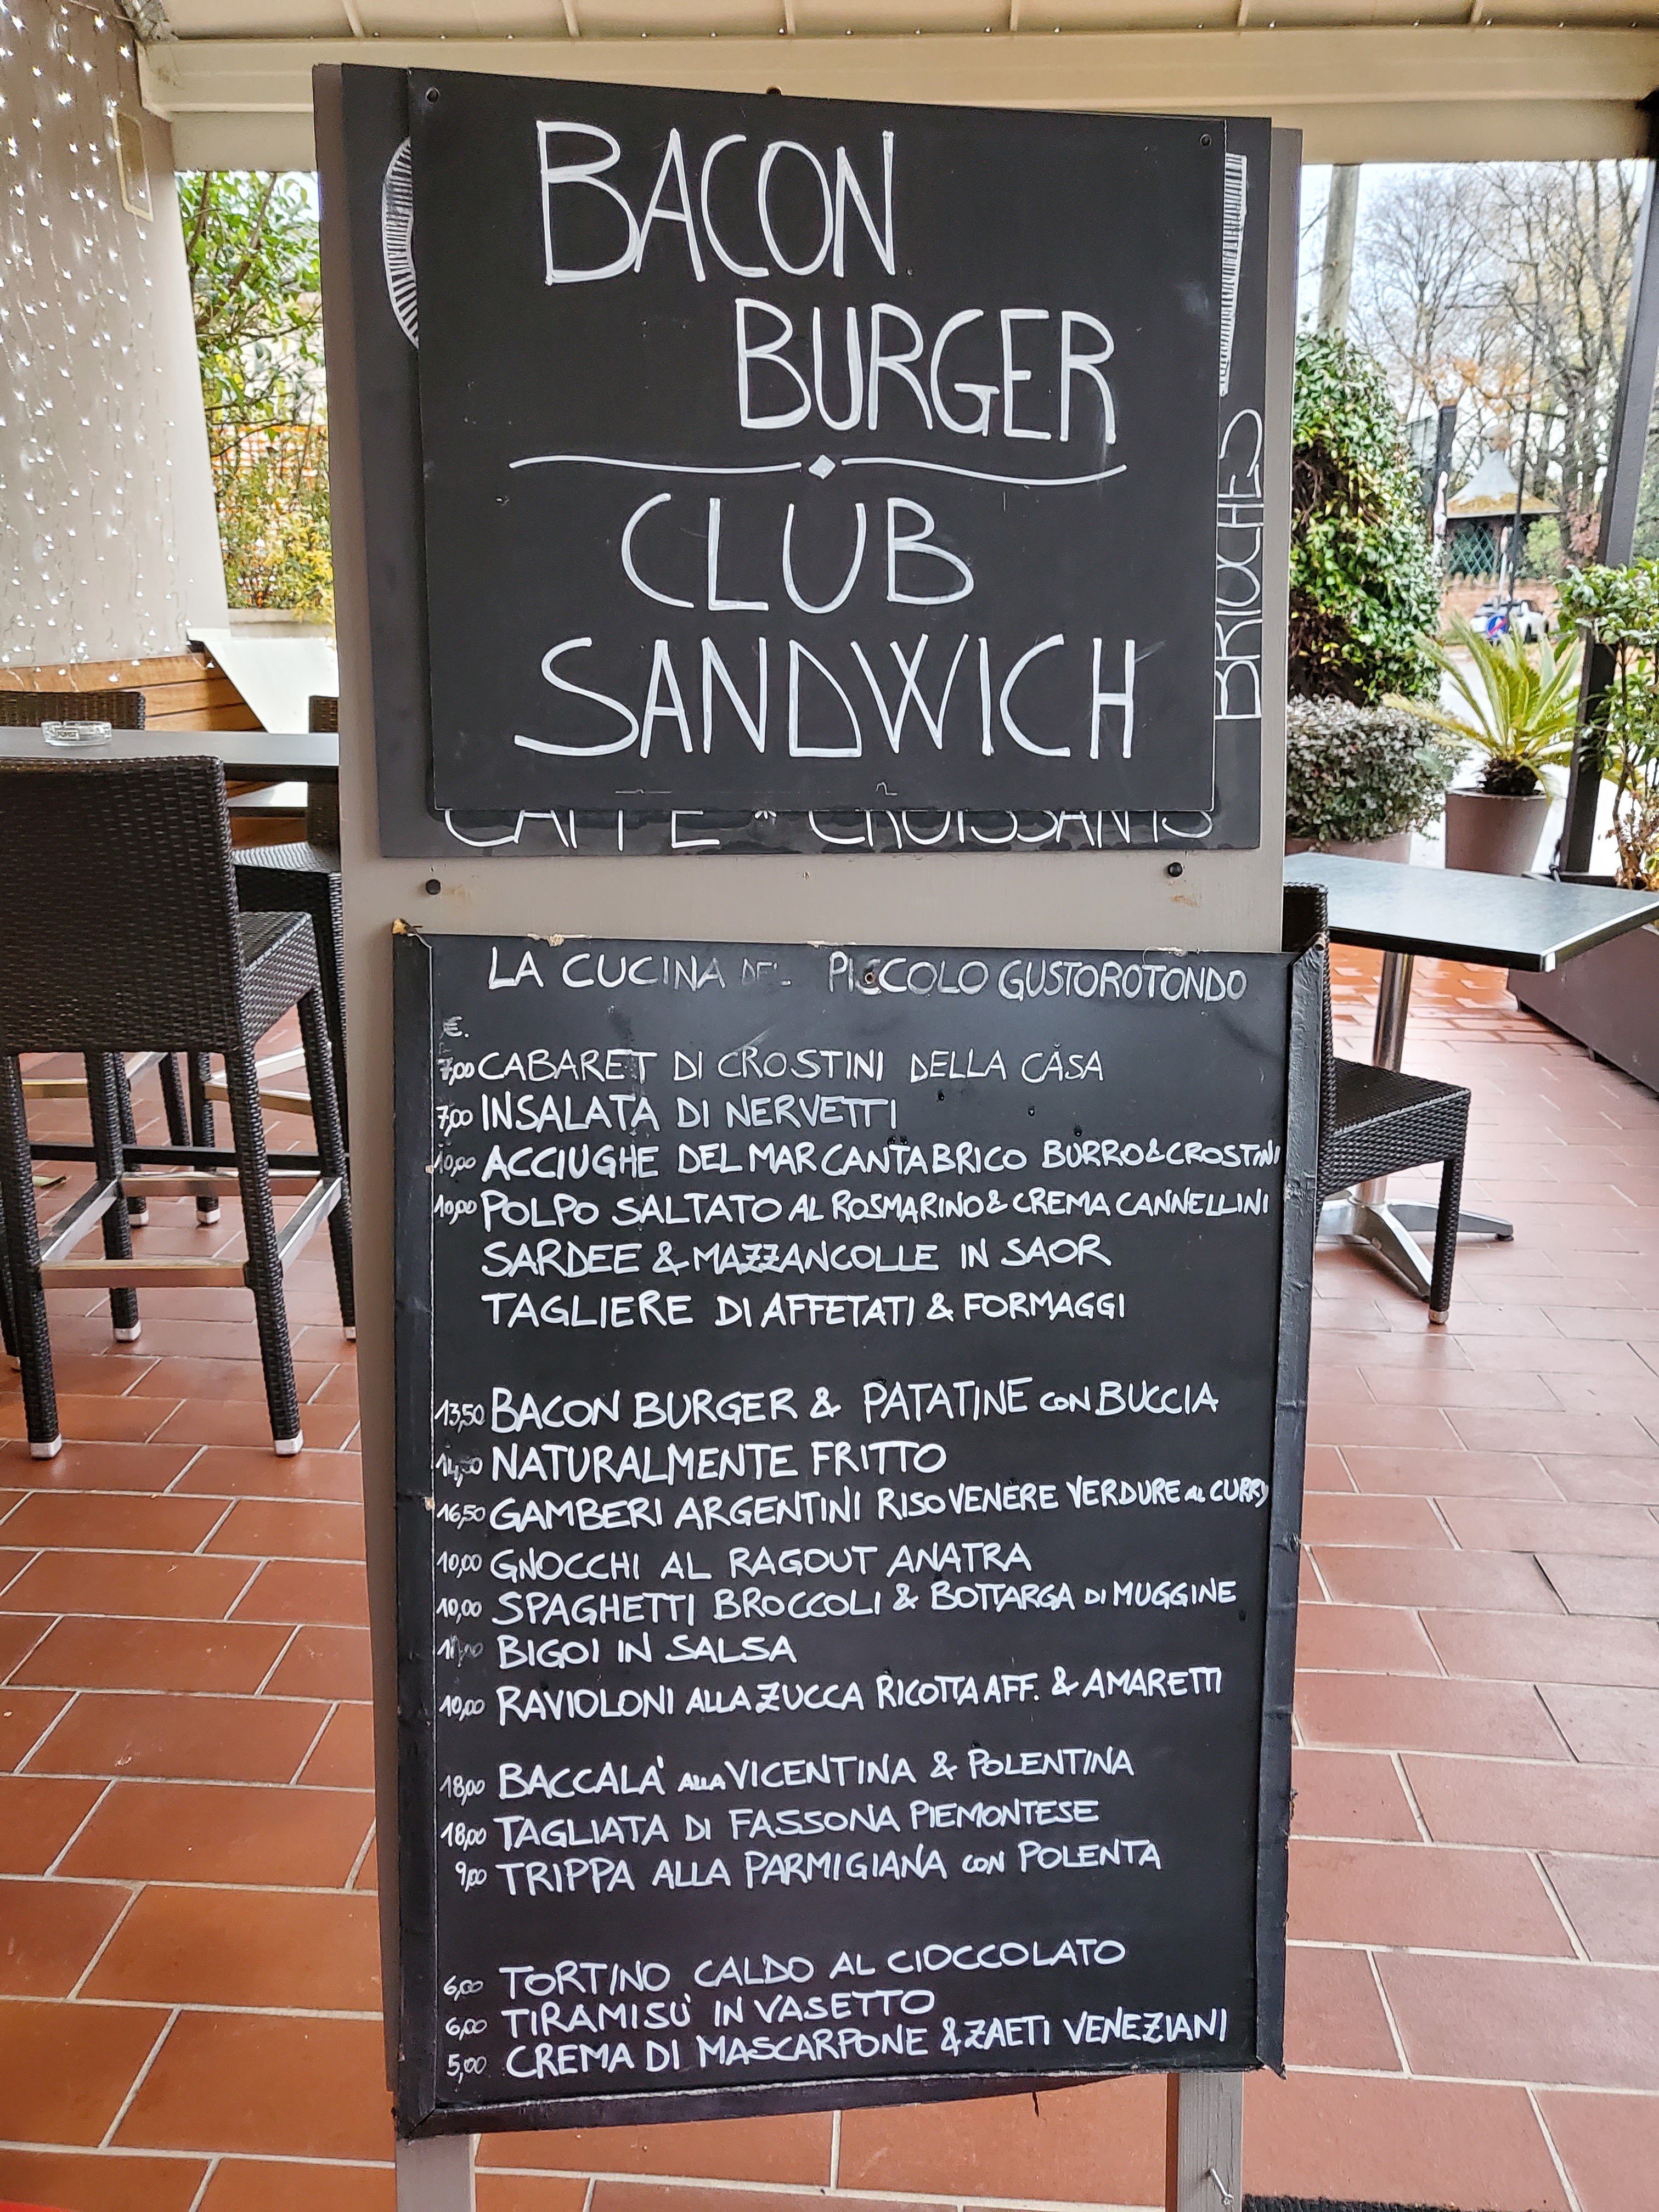 BACON
BURGER
CLUB
SANDWICH
BRIOCHES
CAFFE * CROISSANTS
LA CUCINA DEL PICCOLO GUSTOROTONDO
€.
7,00 CABARET DI CROSTINI DELLA CASA
7,00 INSALATA DI NERVETTI
10,00 ACCIUGHE DEL MAR CANTABRICO BURRO & CROSTINI
10,00 POLPO SALTATO AL ROSMARINO & CREMA CANNELLINI
SARDEE & MAZZANCOLLE IN SAOR
TAGLIERE DI AFFETATI & FORMAGGI
13,50 BACON BURGER & PATATINE CON BUCCIA
14,50 NATURALMENTE FRITTO
16,50 GAMBERI ARGENTINI RISO VENERE VERDURE AL CURRY
10,00 GNOCCHI AL RAGOUT ANATRA
10,00 SPAGHETTI BROCCOLI & BOTTARGA DI MUGGINE
BIGOI IN SALSA
10,00 RAVIOLONI ALLA ZUCCA RICOTTA AFF. & AMARETTI
18,00 BACCALA' ALLA VICENTINA & POLENTINA
18,00 TAGLIATA DI FASSONA PIEMONTESE
9,00 TRIPPA ALLA PARMIGIANA CON POLENTA
6,00 TORTINO CALDO AL CIOCCOLATO
6,00 TIRAMISÙ IN VASETTO
5,00 CREMA DI MASCARPONE & ZAETI VENEZIANI